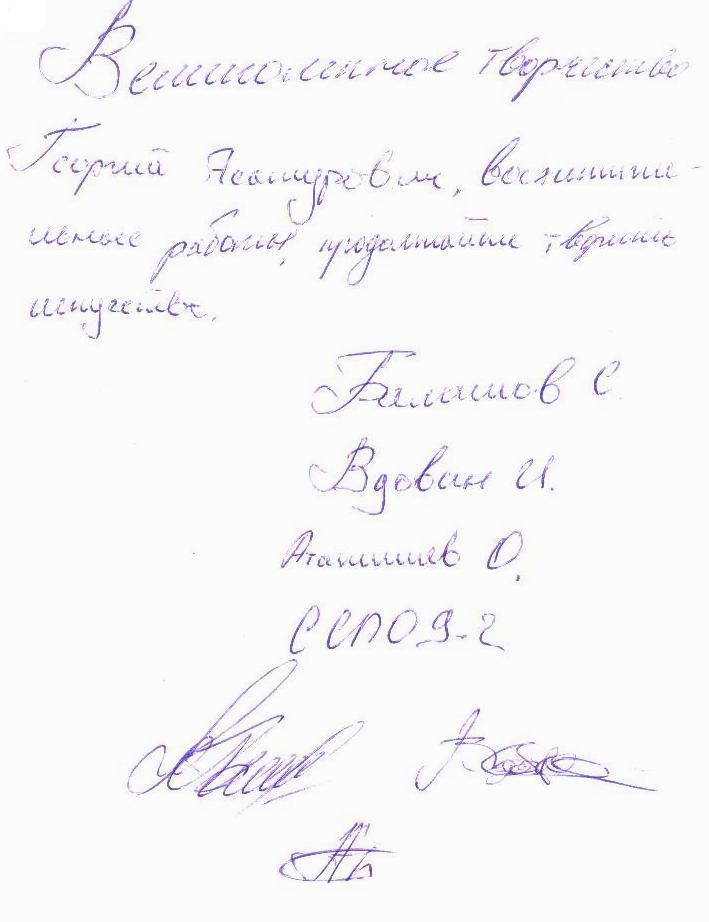 Великолепное творчество
Георгий Асатурович, восхитите-
льные работы, продолжайте творить
искуства.
Балашов С.
Вдован И.
Атанишев О.
ССПО 9-2